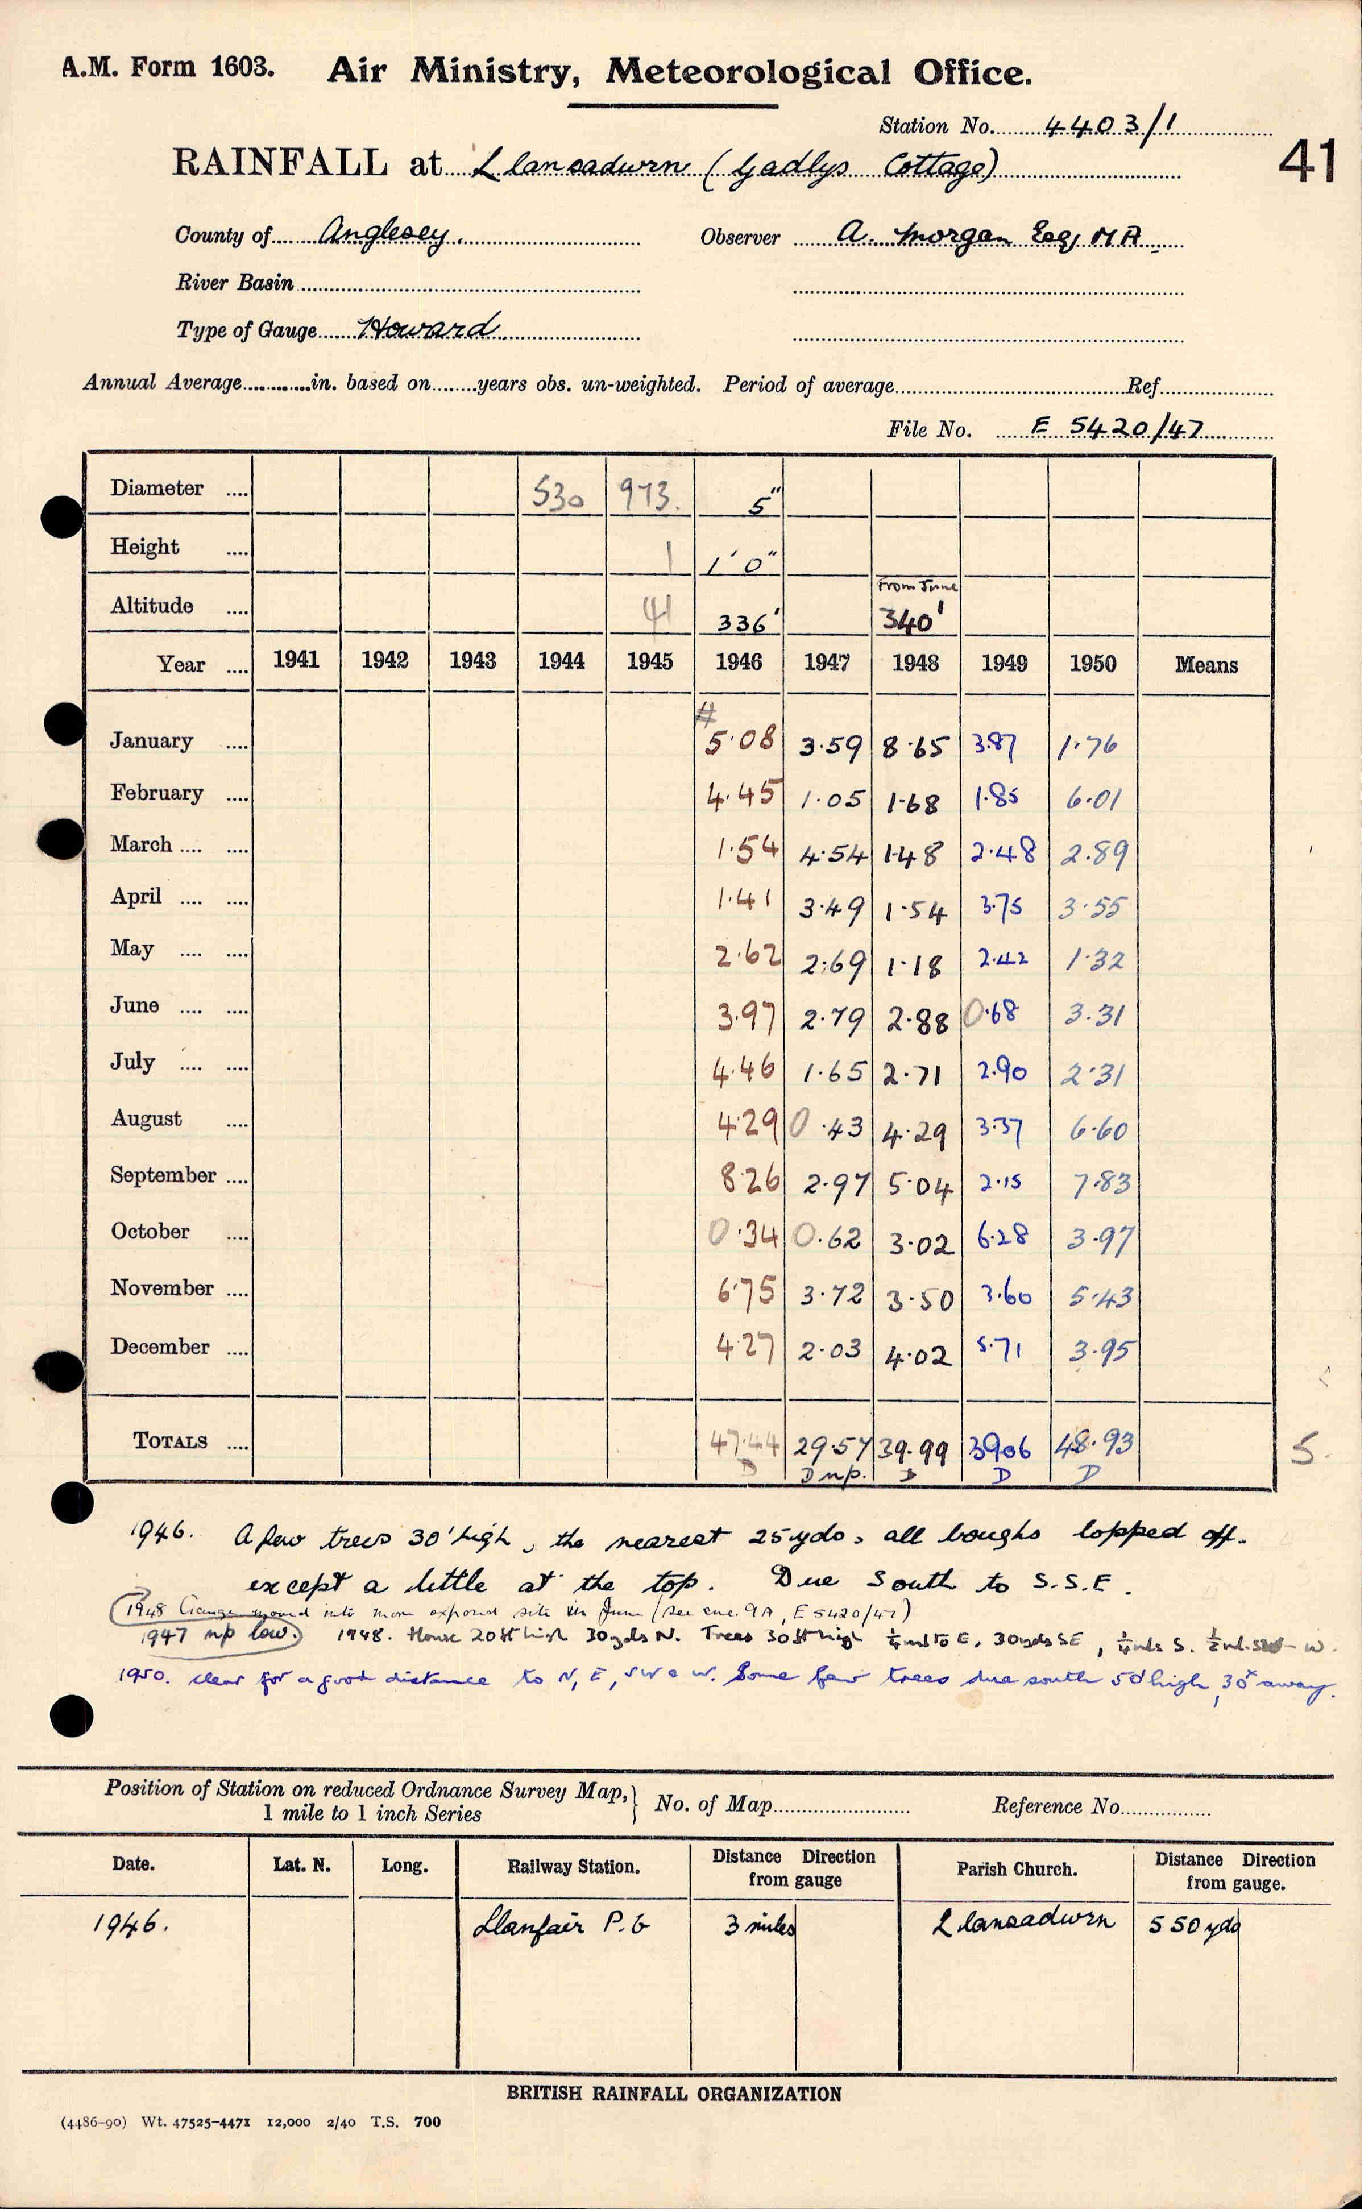 A.M. Form 1603. Air Ministry, Meteorological Office.
Station No. 4403/1
41
RAINFALL at Llansadwrn (Gadlys Cottage)
County of Anglesey. Observer A. Morgan Esq, MA
River Basin
Type of Gauge Howard
Annual Average in. based on years obs. un-weighted. Period of average Ref
File No. E 5420/47
Diameter .... 530 973. 5"
Height .... 1 1' 0"
From June
Altitude .... 41 336' 340'
Year .... 1941 1942 1943 1944 1945 1946 1947 1948 1949 1950 Means
#
January .... 5.08 3.59 8.65 3.87 1.76
February .... 4.45 1.05 1.68 1.85 6.01
March .... .... 1.54 4.54 1.48 2.48 2.89
April .... .... 1.41 3.49 1.54 3.75 3.55
May .... .... 2.62 2.69 1.18 2.42 1.32
June .... .... 3.97 2.79 2.88 0.68 3.31
July .... .... 4.46 1.65 2.71 2.90 2.31
August .... 4.29 0.43 4.29 3.37 6.60
September .... 8.26 2.97 5.04 2.15 7.83
October .... 0.34 0.62 3.02 6.28 3.97
November .... 6.75 3.72 3.50 3.60 5.43
December .... 4.27 2.03 4.02 5.71 3.95
TOTALS .... 47.44 29.57 39.99 39.06 48.93 5.
D D np. D D D
1946. A few trees 30' high, the nearest 25 yds, all boughs lopped off.
except a little at the top. Due South to S.S.E.
1948 Gauge moved into more exposed site in June (see enc. 9A, E 5420/47)
1947 np low. 1948. House 20ft high 30yds N. Trees 30ft high 1/4 ml to E, 30yds SE, 1/4 mls S. 1/2 ml. W.
1950. clear for a good distance to N, E, SW & W. Some few trees due south 50' high, 30x away.
Position of Station on reduced Ordnance Survey Map, 1 mile to 1 inch Series } No. of Map Reference No.
Date. Lat. N. Long. Railway Station. Distance Direction from gauge Parish Church. Distance Direction from gauge.
1946. Llanfair P.G 3 miles Llansadwrn 550 yds
BRITISH RAINFALL ORGANIZATION
(4486-90) Wt. 47525-4471 12,000 2/40 T.S. 700